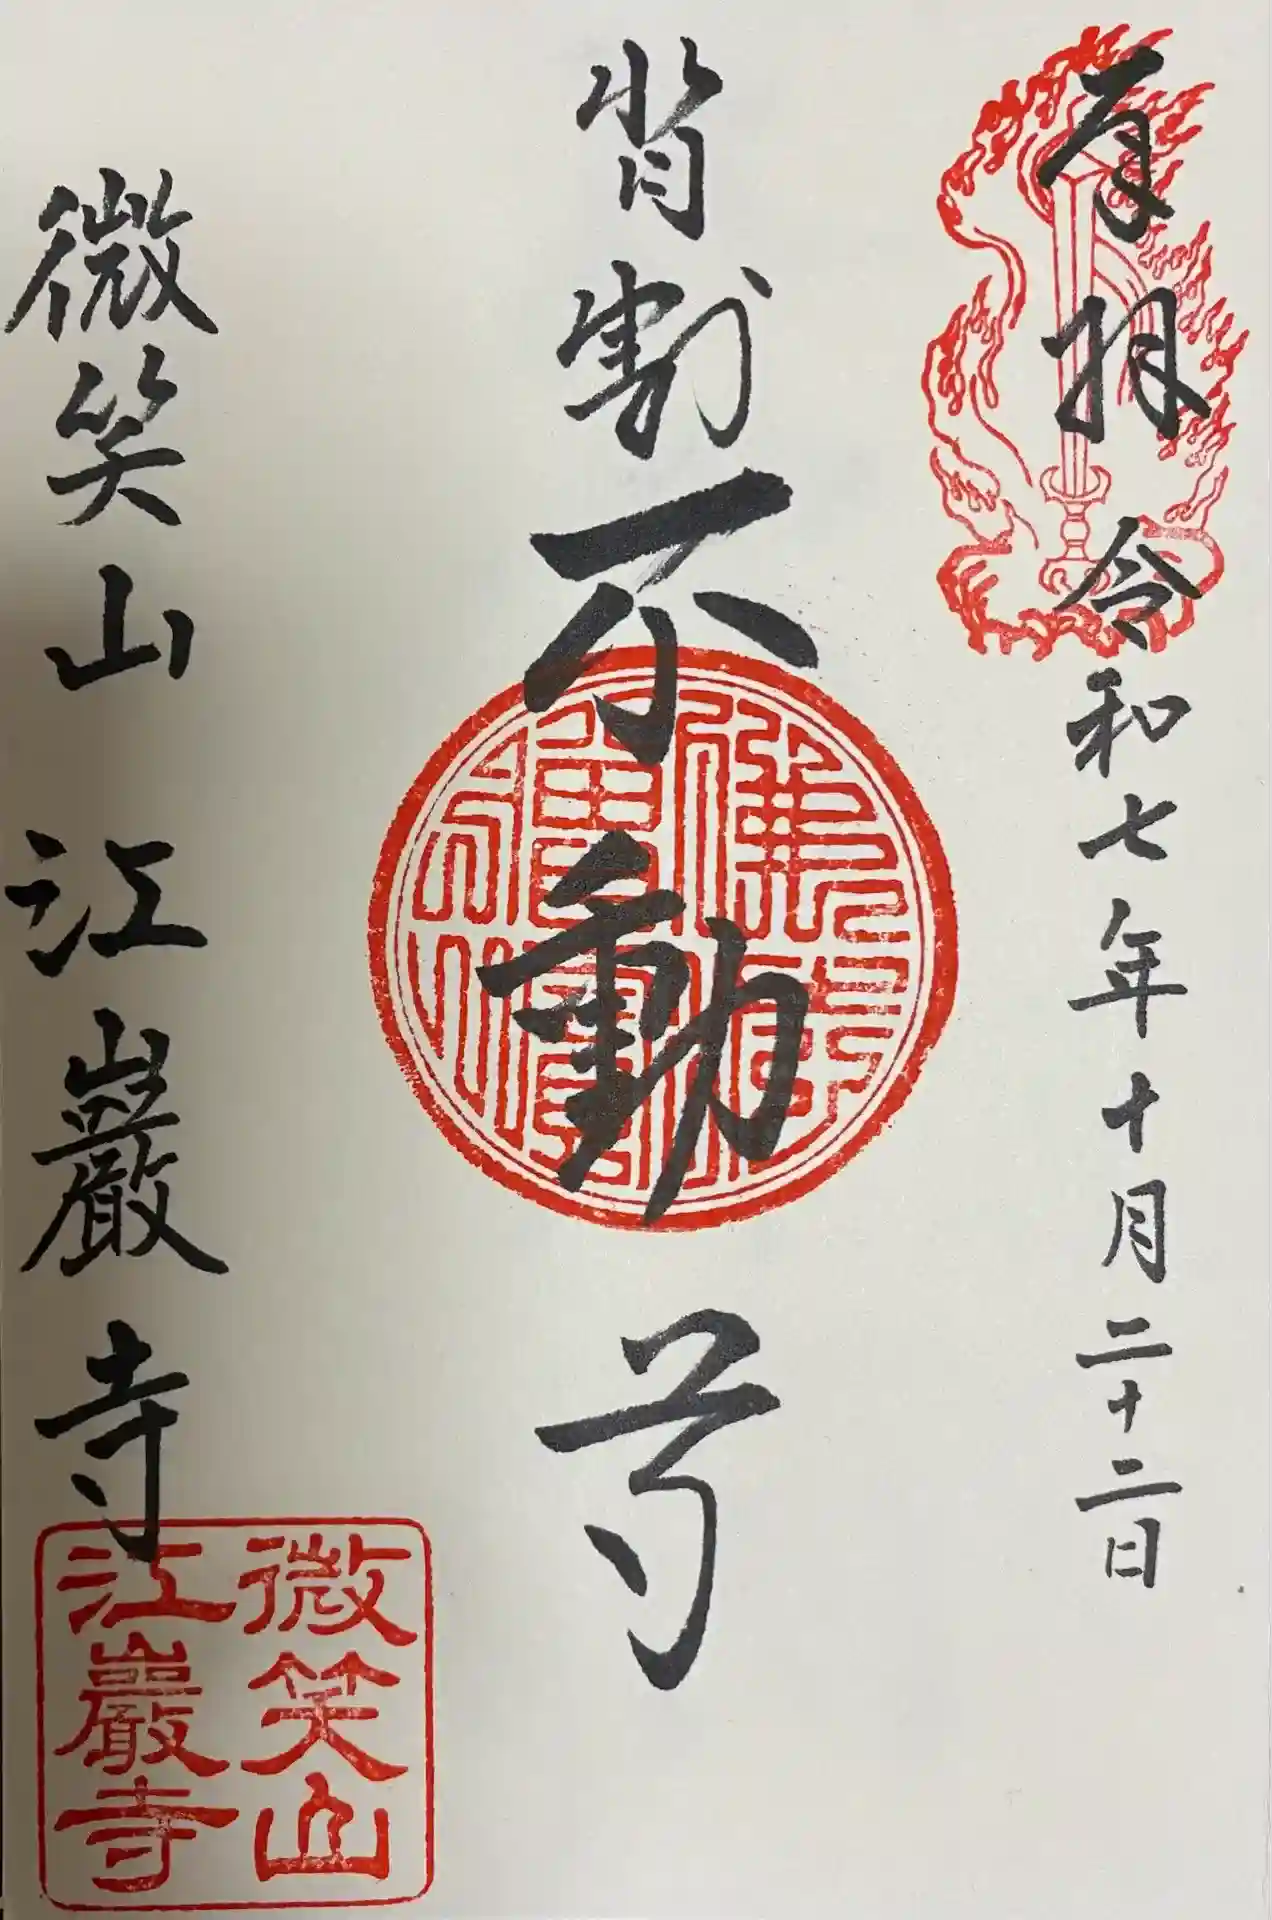 拝 令和七年十月二十二日
背割不動尊
微笑山 江巖寺
微笑山
江巖寺